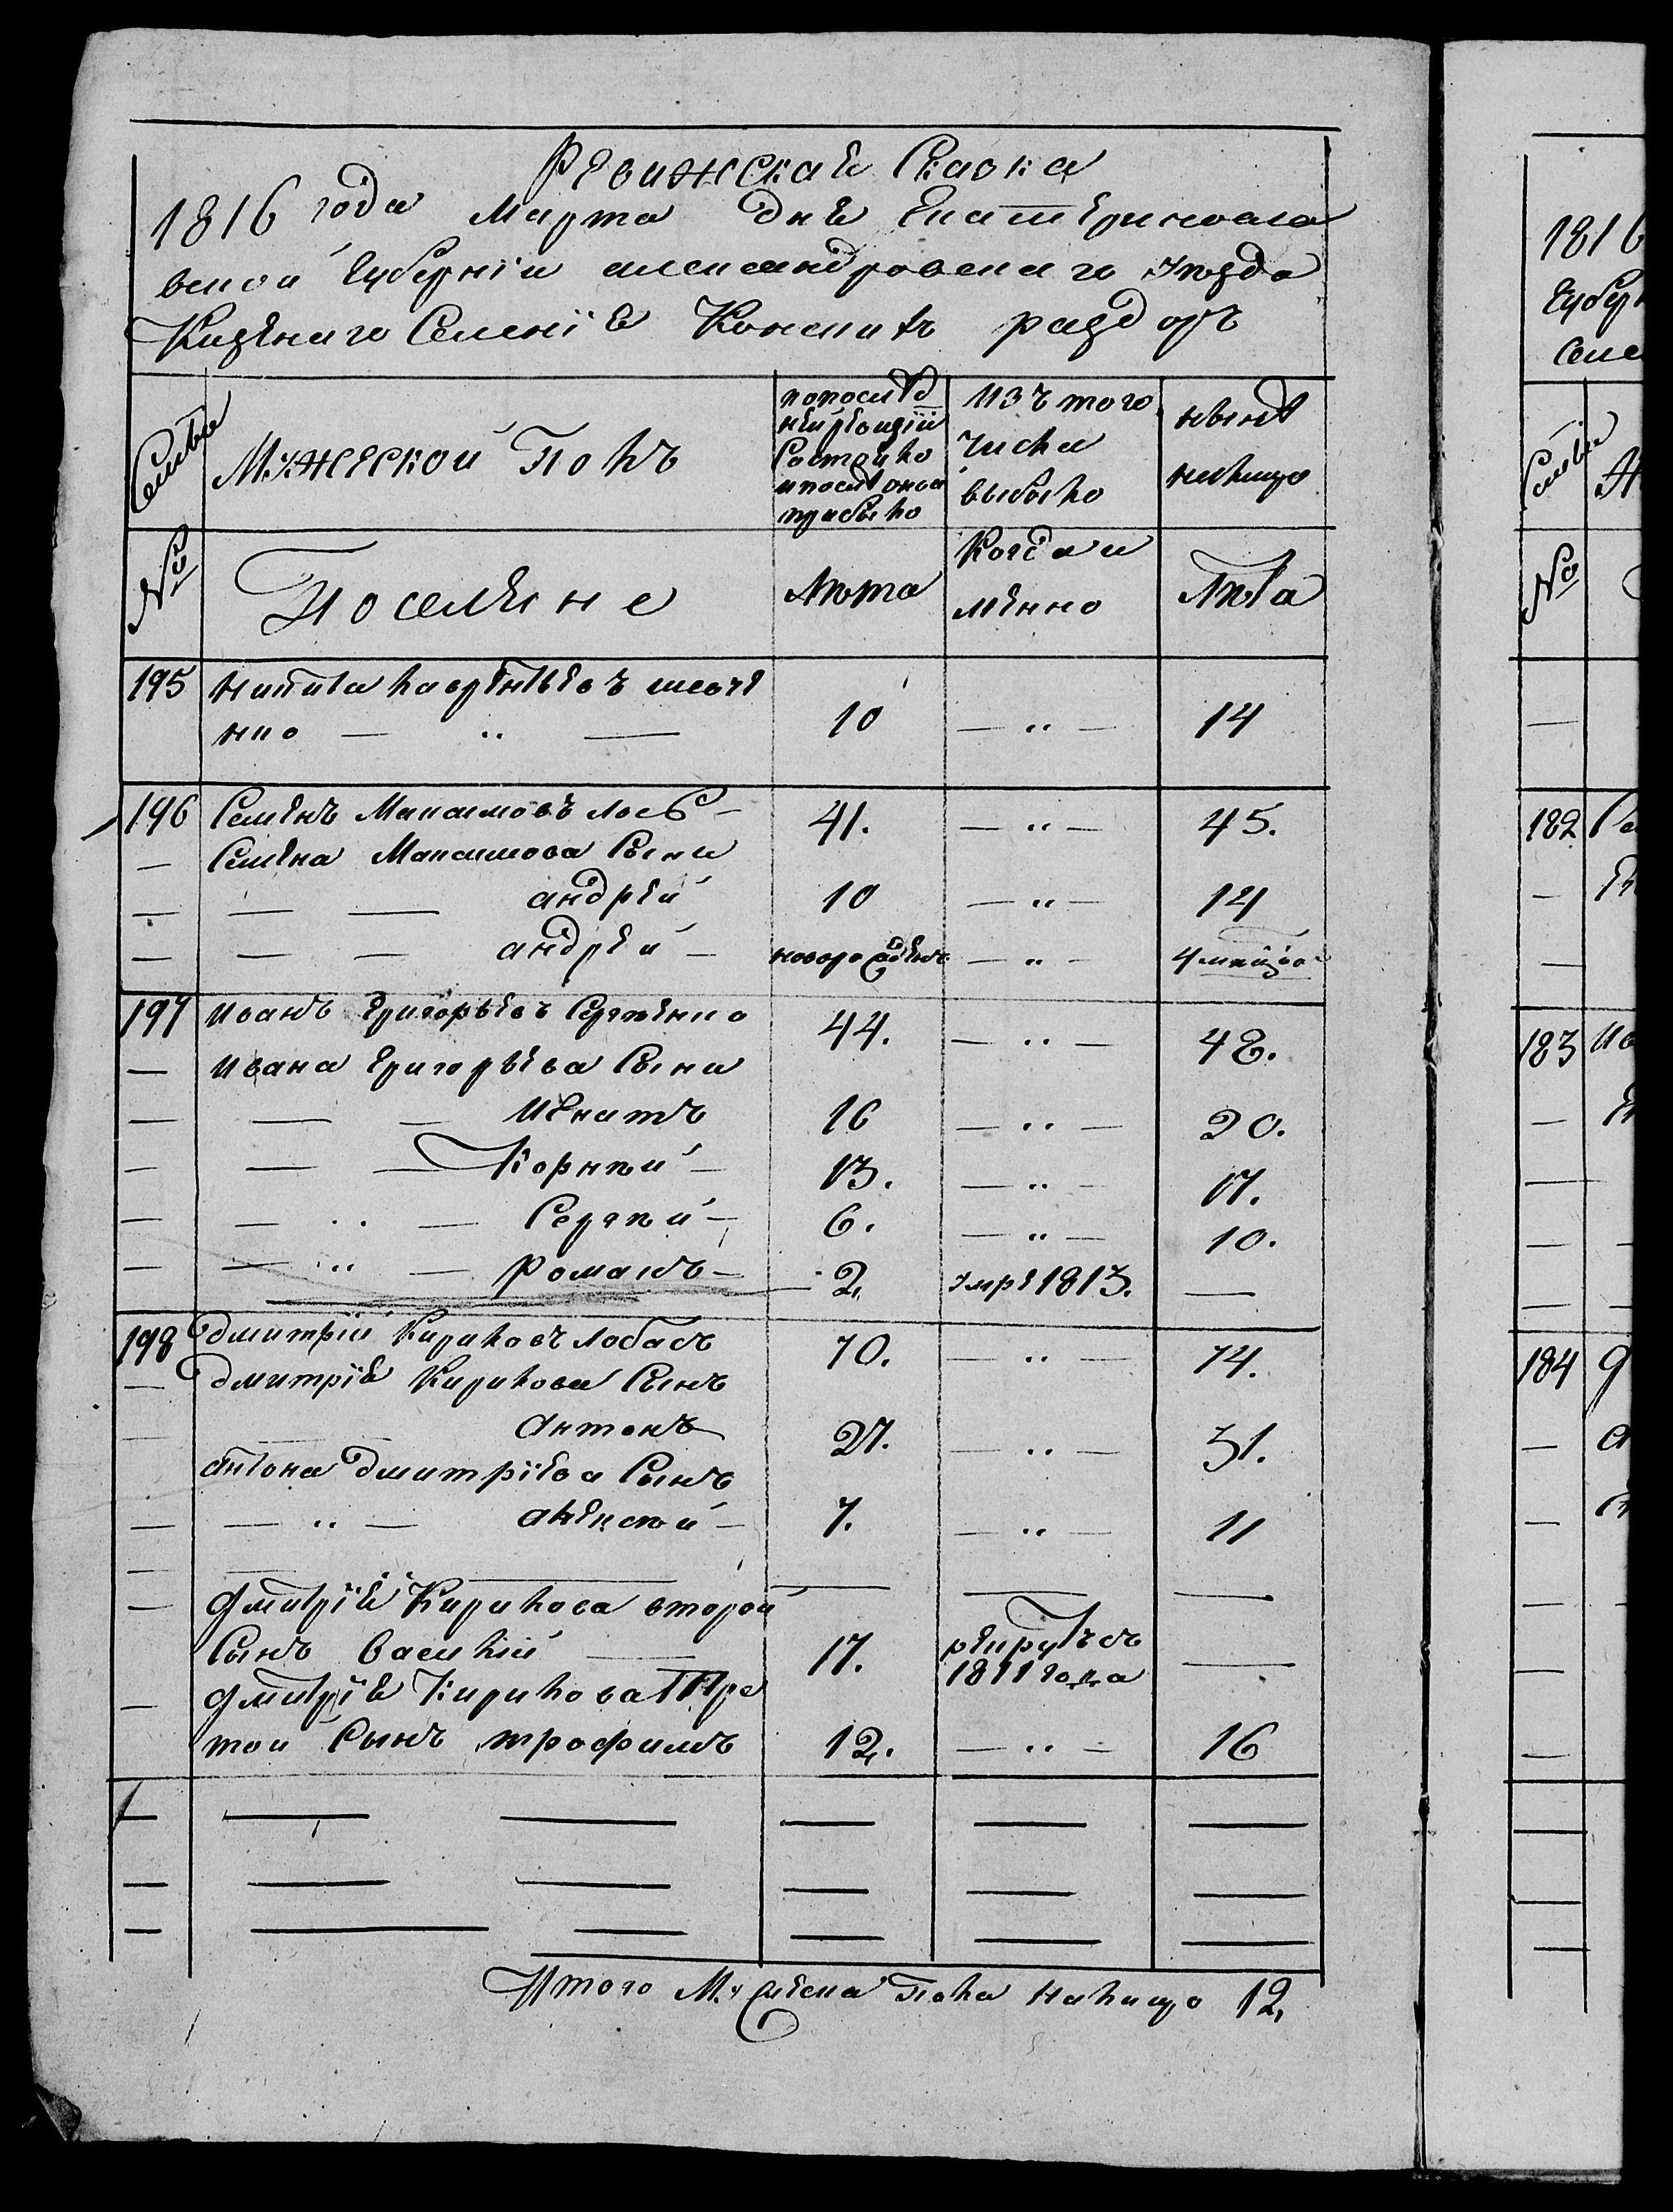 Ревижская Скаска
1816 года Марта дня Екатериносла
вской Губерніи александровскаго уезда
Казенаго Селенія Конскихъ раздоръ
Семьи
Мужеской Полъ
по послѣд
ней ревизіи
Состояло
и послѣ онои
прибыло
изъ того
числа
выбыло
нынѣ
налицо
№
Поселяне
Лѣта
Когда и
менно
Лѣта
195 Никита лаврентьевъ шевче
нко — " — 10 — " — 14
196 Семенъ Максимовъ 41. — " — 45.
— Семена Максимова Сыни
— — — андрей 10 — " — 14
— — — андрей — новорожденъ — " — 4 мѣсяца
197 Иванъ Григорьевъ Сергѣенко 44. — " — 48.
— Ивана Григорьева Сыни
— — — Игнатъ 16 — " — 20.
— — — Корнѣй — 13. — " — 17.
— — " — Сергѣй — 6. — " — 10.
— — " — Романъ — 2. умре 1813. —
198 дмитрій Кириловъ лобасъ 70. — " — 74.
— дмитрія Кирилова Сынъ
Антонъ 27. — " — 31.
Антона дмитріева Сынъ
— — " — Алексѣй — 7. — " — 11
— — — — — —
— Дмитрія Кирилова второй
Сынъ Василій — 17. рекрутъ съ —
1811 года
— Дмитрія Кирилова Тре
той Сынъ трофимъ 12. — " — 16
— — — — — —
— — — — — —
— — — — — —
Итого Мужеска Пола Налицо 12,
1816
Губер
Селе
Семьи
№
182
183 Ив
184 Д